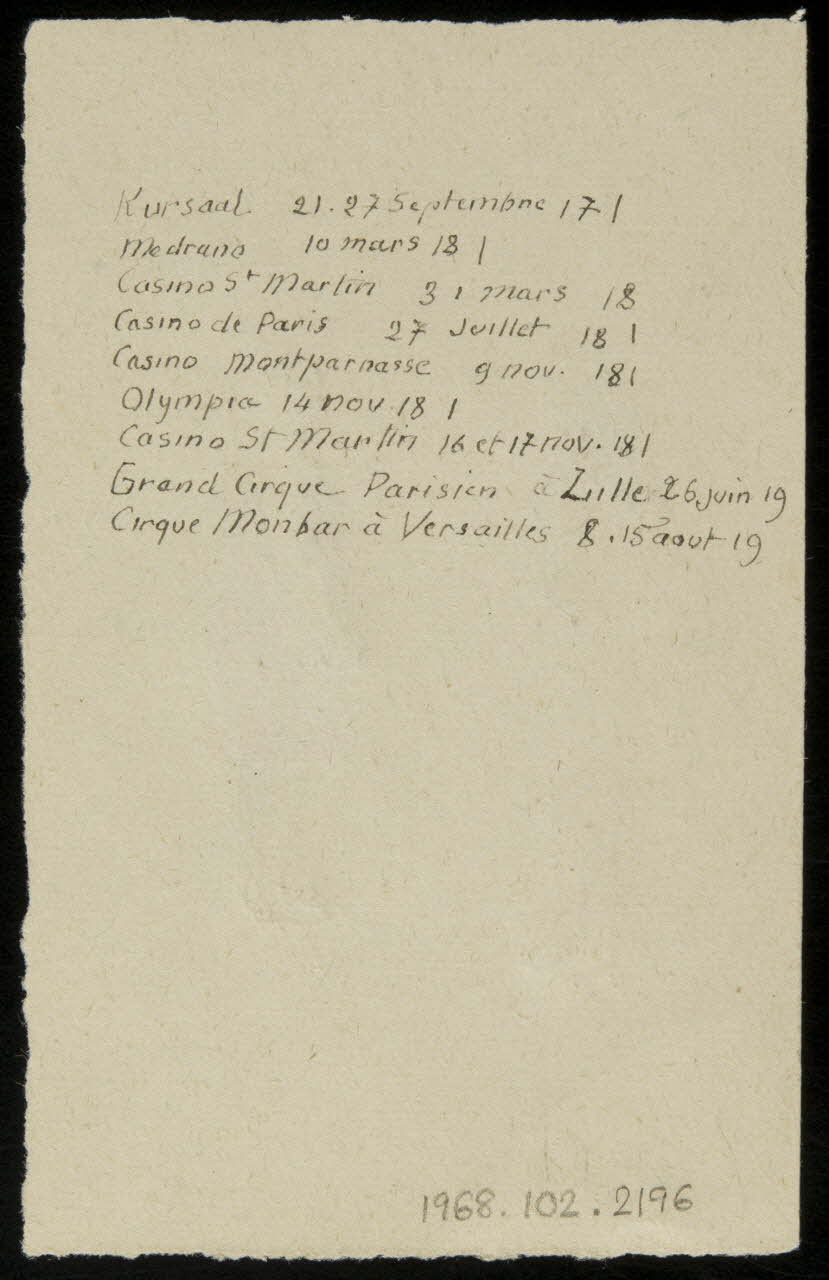 Kursaal 21.27 Septembre 17 |
Medrano 10 mars 18 |
Casino St Martin 31 mars 18
Casino de Paris 27 Juillet 18 |
Casino Montparnasse 9 nov. 18 |
Olympia 14 nov 18 |
Casino St Martin 16 et 17 nov. 18 |
Grand Cirque Parisien à Lille 26 juin 19
Cirque Monbar à Versailles 8.15 aout 19
1968.102.2196